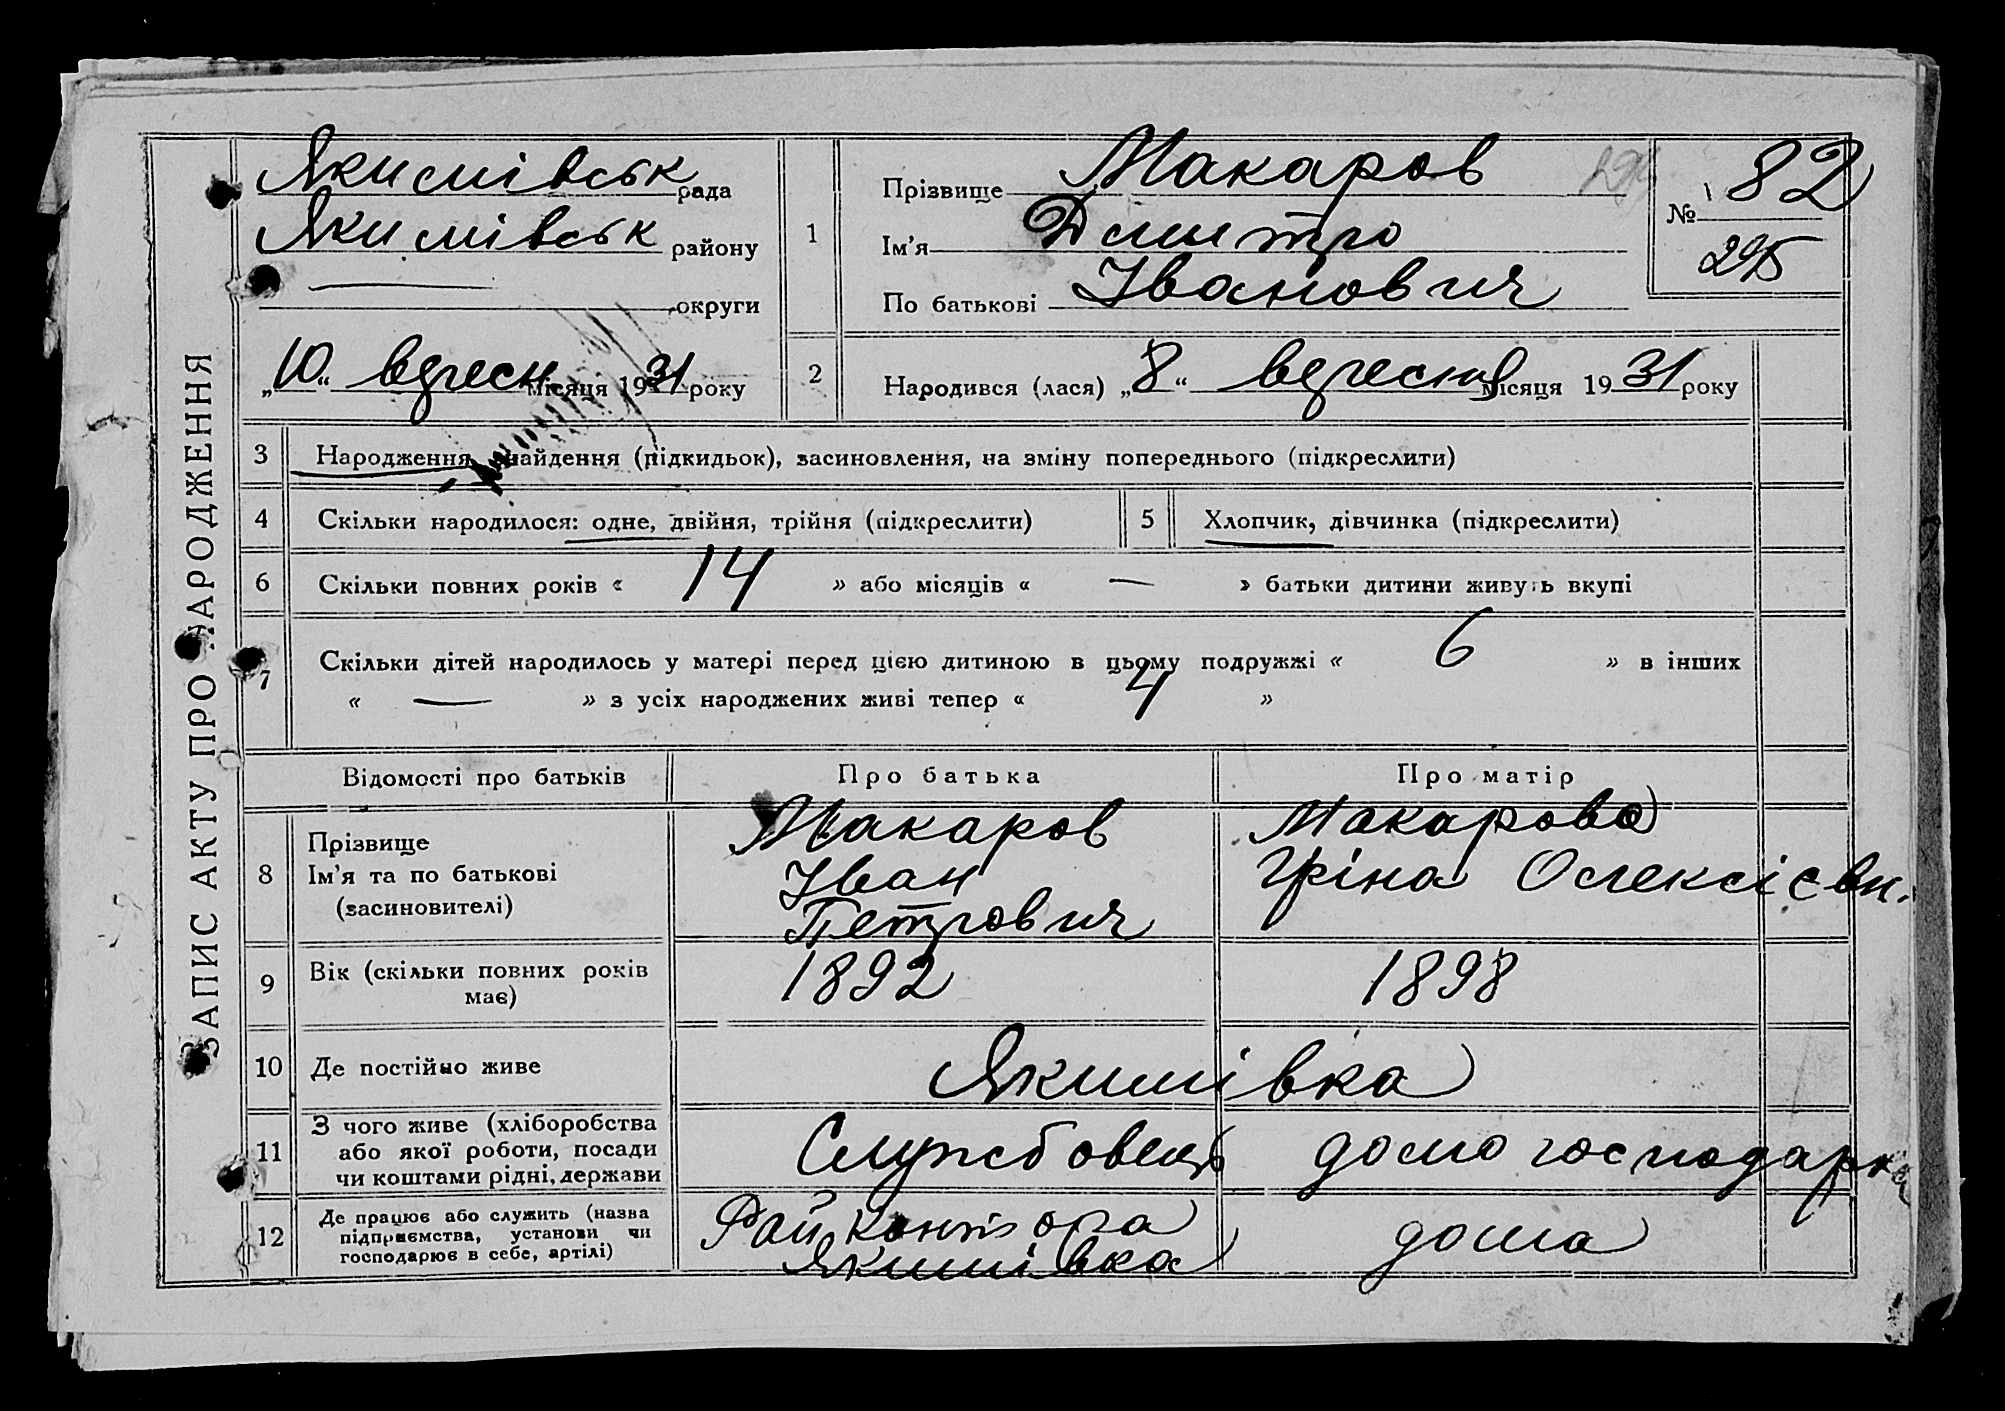 ЗАПИС АКТУ ПРО НАРОДЖЕННЯ
Якимівськ рада
Якимівськ району
— округи
„10“ вересн. місяця 1931 року
1
Прізвище Макаров
Ім'я Дмитро
По батькові Іванович
№ 82
295
2 Народився (лася) „8“ вересня місяця 1931 року
3 Народження, знайдення (підкидьок), засиновлення, на зміну попереднього (підкреслити)
4 Скільки народилося: одне, двійня, трійня (підкреслити) 5 Хлопчик, дівчинка (підкреслити)
6 Скільки повних років « 14 » або місяців « — » батьки дитини живуть вкупі
7 Скільки дітей народилось у матері перед цією дитиною в цьому подружжі « 6 » в інших
« — » з усіх народжених живі тепер « 4 »
Відомості про батьків Про батька Про матір
8 Прізвище Макаров Макарова
Ім'я та по батькові Іван Гріна Олексієвн.
(засиновителі) Петрович
9 Вік (скільки повних років має) 1892 1898
10 Де постійно живе Якимівка
11 З чого живе (хліборобства або якої роботи, посади чи коштами рідні, держави Службовець домогосподарка
12 Де працює або служить (назва підприємства, установи чи господарює в себе, артілі) Райконтора дома
Якимівка